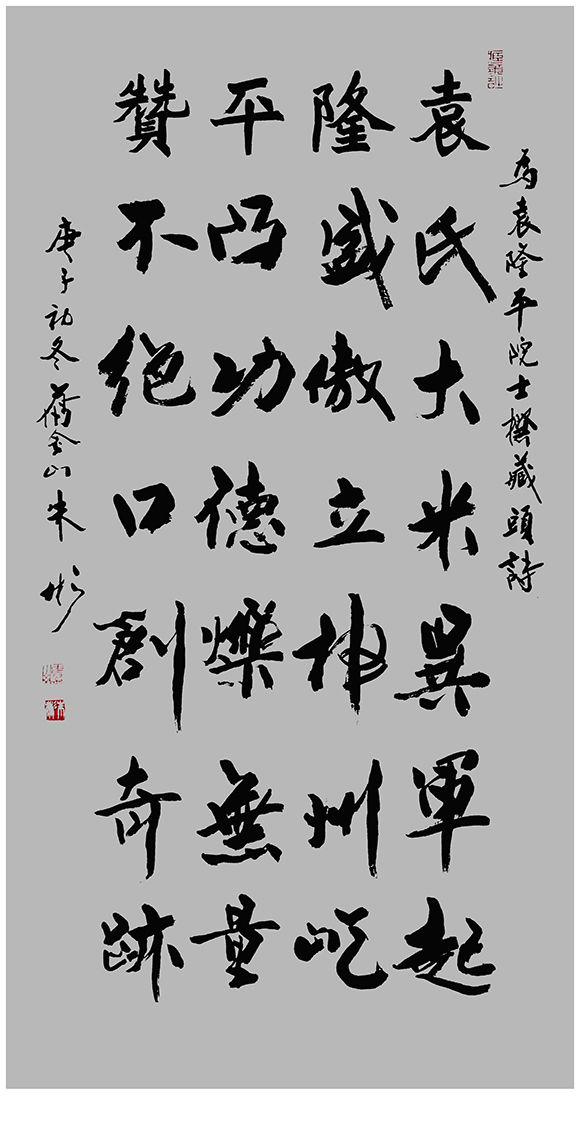 為袁隆平院士撰藏頭詩
袁氏大米異軍起
隆盛傲立神州屹
平凸功德爍無量
贊不絕口創奇跡
庚子初冬 金山朱彬